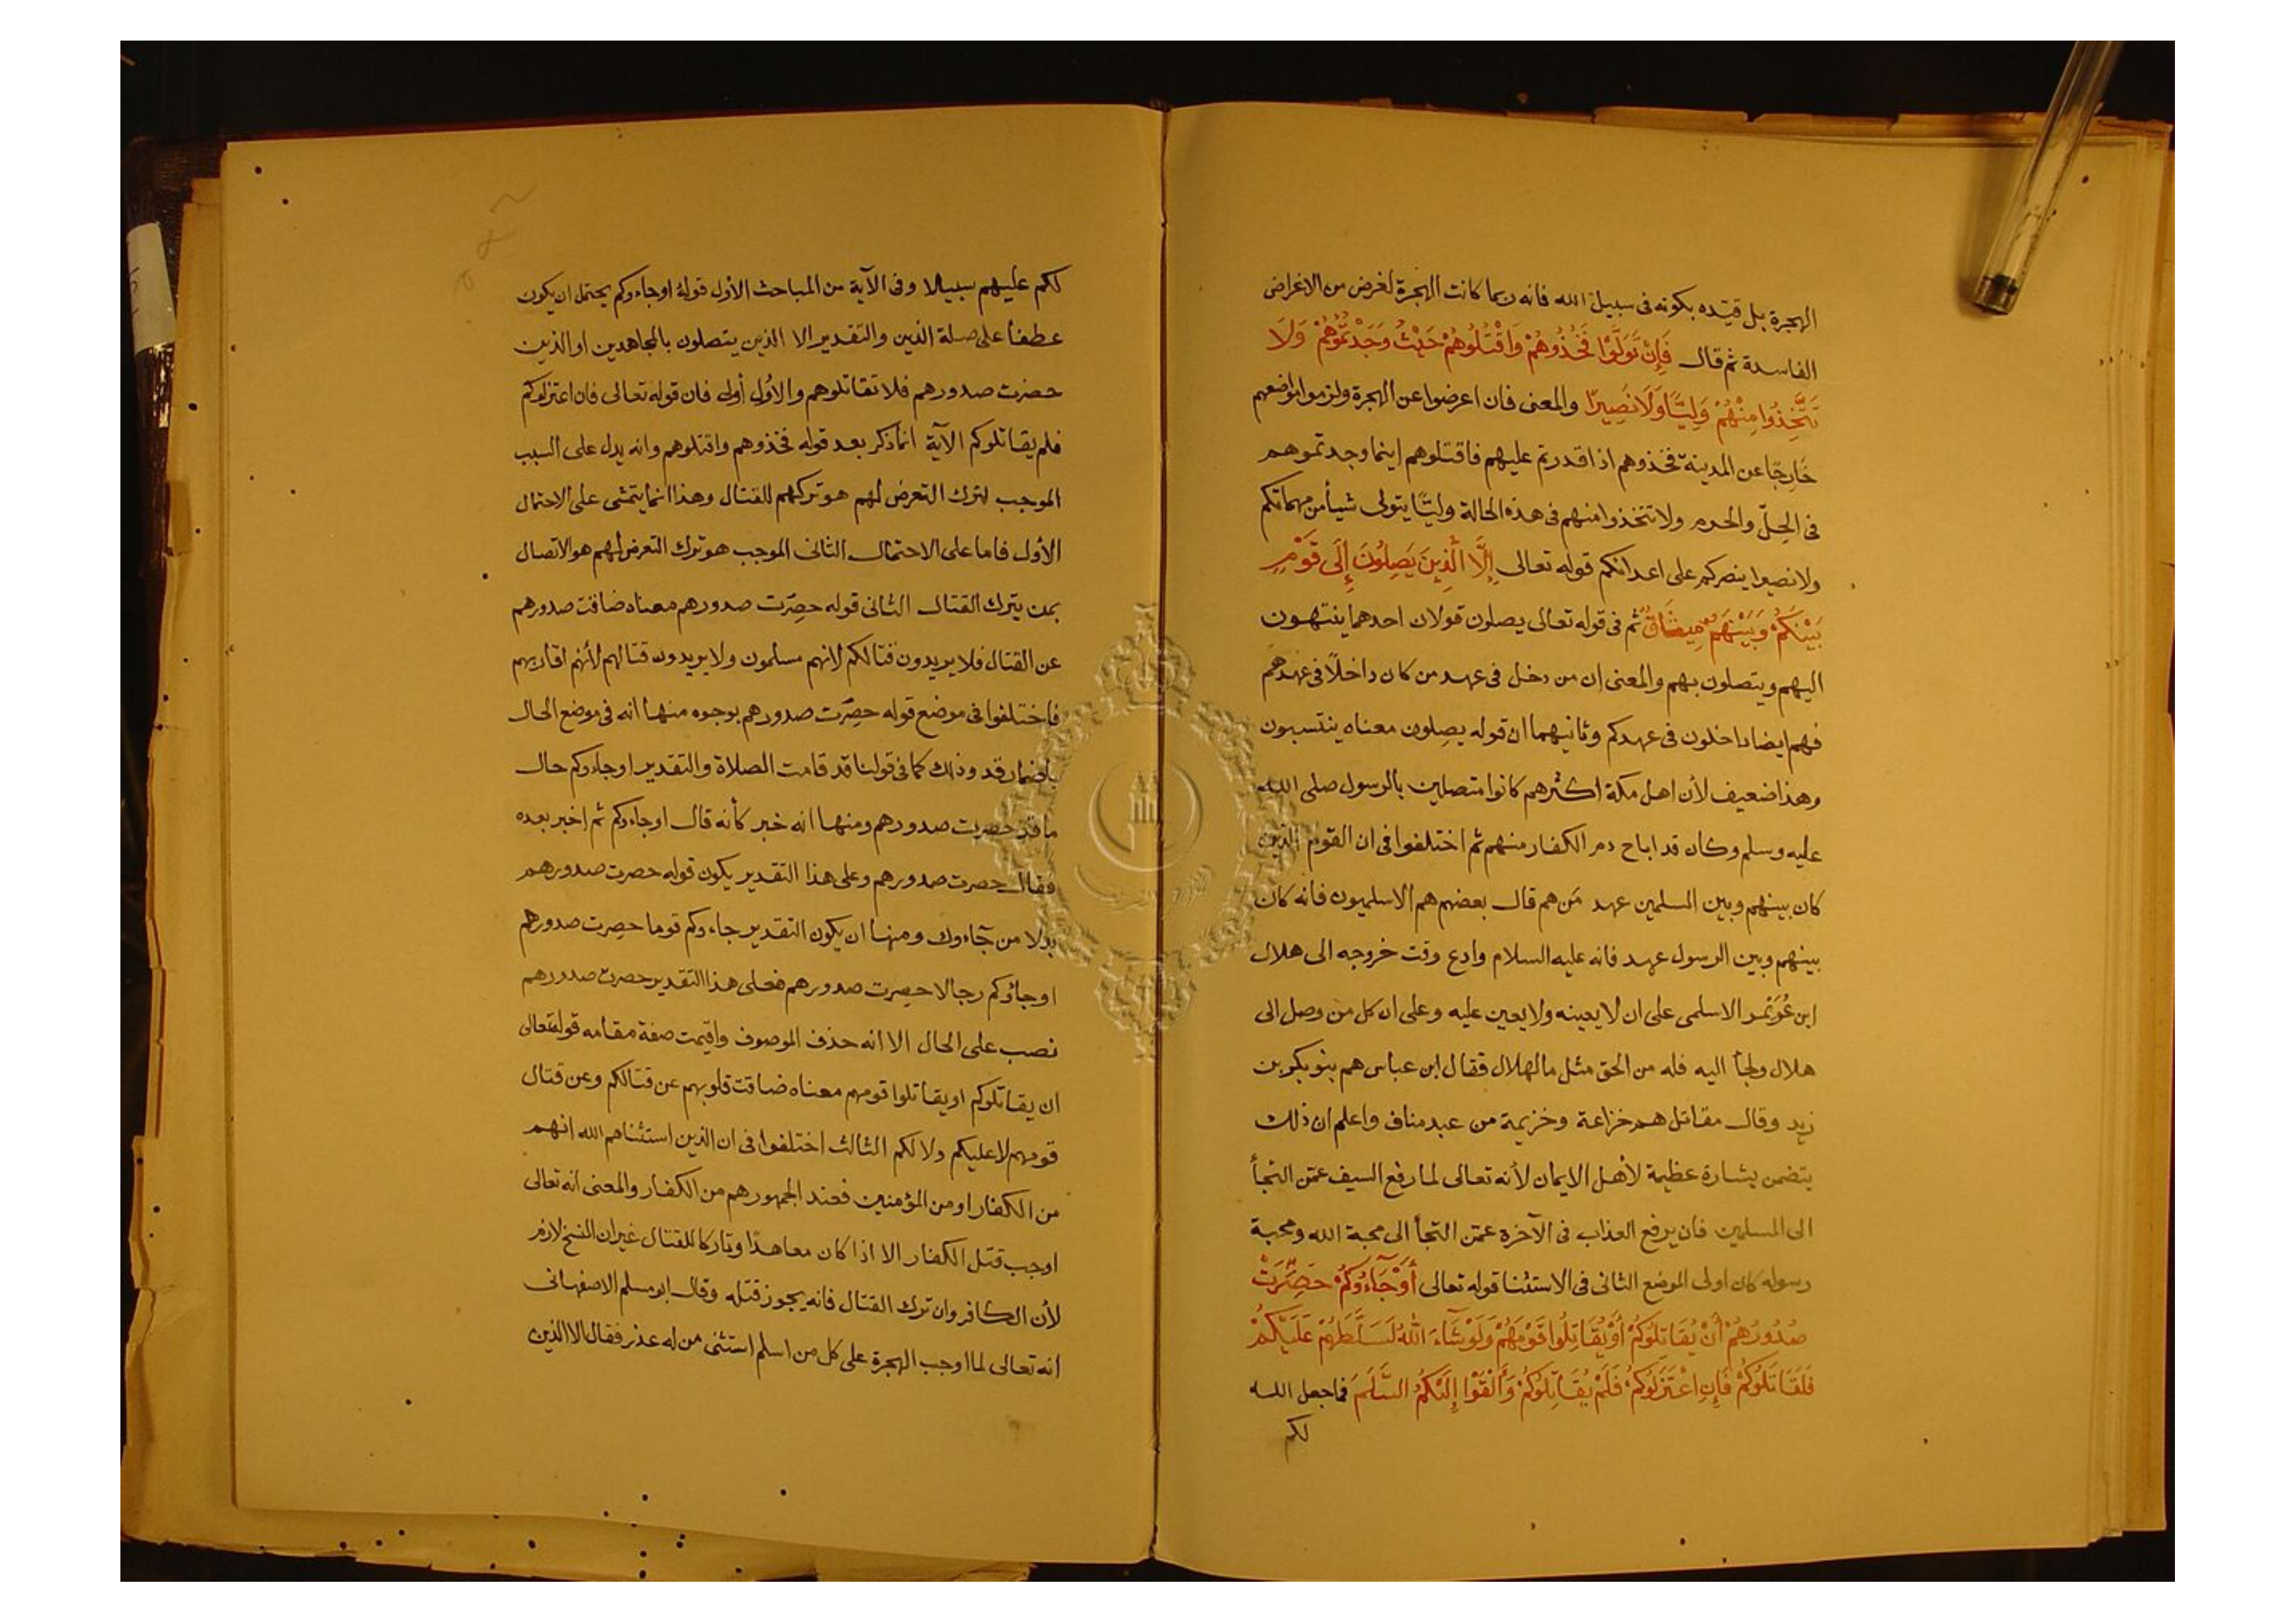 الهجرة بل قيّده بكونه فى سبيل الله فانه ربما كانت الهجرة لغرض من الاغراض
الفاسدة ثم قال فَإِنْ تَوَلَّوْا فَخُذُوهُمْ وَاقْتُلُوهُمْ حَيْثُ وَجَدْتُمُوهُمْ وَلَا
تَتَّخِذُوا مِنْهُمْ وَلِيًّا وَلَا نَصِيرًا والمعنى فان اعرضوا عن الهجرة ولزموا مواضعهم
خَارجًا عن المدينة فخذوهم اذا قدرتم عليهم فاقتلوهم اينما وجدتموهم
فى الحِلّ والحرم ولا تتخذوا منهم فى هذه الحالة وليًّا يتولى شيأ من مهماتكم
ولا نصيرا ينصركم على اعدائكم قوله تعالى إِلَّا الَّذِينَ يَصِلُونَ إِلَى قَوْمٍ
بَيْنَكُمْ وَبَيْنَهُمْ مِيثَاقٌ ثم فى قوله تعالى يصلون قولان احدهما ينتهون
اليهم ويتصلون بهم والمعنى ان من دخل فى عهد من كان داخلًا فى عهدهم
فهم ايضا داخلون فى عهدكم وثانيهما ان قوله يصِلون معناه ينتسبون
وهذا ضعيف لأن اهل مكة اكثرهم كانوا متصلين بالرسول صلى الله
عليه وسلم وكان قد اباح دم الكفار منهم ثم اختلفوا فى ان القوم الذين
كان بينهم وبين المسلمين عهد مَن هم قال بعضهم هم الاسلميون فانه كان
بينهم وبين الرسول عهد فانه عليه السلام وادع وقت خروجه الى هلال
ابن عُوَيْمر الاسلمى على ان لا يعينه ولا يعين عليه وعلى ان كل من وصل الى
هلال ولجأ اليه فله من الحق مثل ما لهلال فقال ابن عباس هم بنو بكر بن
زيد وقال مقاتل هم خزاعة وخزيمة من عبد مناف واعلم ان ذلك
يتضمن بشارة عظيمة لأهل الايمان لأنه تعالى لما رفع السيف عمّن التجأ
الى المسلمين فان يرفع العذاب فى الآخرة عمّن التجأ الى محبة الله ومحبة
رسوله كان اولى الموضع الثانى فى الاستثنا قوله تعالى أَوْجَآءُوكُمْ حَصِرَتْ
صُدُورُهُمْ أَنْ يُقَاتِلُوكُمْ أَوْ يُقَاتِلُوا قَوْمَهُمْ وَلَوْ شَآءَ اللهُ لَسَلَّطَهُمْ عَلَيْكُمْ
فَلَقَاتَلُوكُمْ فَإِنِ اعْتَزَلُوكُمْ فَلَمْ يُقَاتِلُوكُمْ وَأَلْقَوْا إِلَيْكُمُ السَّلَمَ فما جعل الله
لكم
لكم عليهم سبيلا وفى الآية من المباحث الأول قوله اوجاءوكم يحتمل ان يكون
عطفا على صلة الذين والتقدير الا الذين يتصلون بالمجاهدين او الذين
حضرت صدورهم فلا تقاتلوهم والأول أولى فان قوله تعالى فان اعتزلوكم
فلم يقاتلوكم الآية انما ذكر بعد قوله فخذوهم واقتلوهم وانه يدل على السبب
الموجب لترك التعرض لهم هو تركهم للقتال وهذا انما يتمشى على الاحتمال
الأول فاما على الاحتمال الثانى الموجب هو ترك التعرض لهم هو الاتصال
بمن يترك القتال الثانى قوله حصِرت صدورهم معناه ضاقت صدورهم
عن القتال فلا يريدون قتالكم لانهم مسلمون ولا يريدون قتالهم لأنهم اقاربهم
فاختلفوا فى موضع قوله حصِرت صدورهم بوجوه منها انه فى موضع الحال
باضمار قد وذلك كما فى قولنا قد قامت الصلاة والتقدير اوجاءوكم حال
ما قد حصرت صدورهم ومنها انه خبر كأنه قال اوجاءوكم ثم اخبر بعده
فقال حصرت صدورهم وعلى هذا التقدير يكون قوله حصرت صدورهم
بدلا من جآءوك ومنها ان يكون التقدير جاءوكم قوما حصِرت صدورهم
اوجاؤكم رجالا حصِرت صدورهم فعلى هذا التقدير حصرت صدورهم
نصب على الحال الا انه حذف الموصوف واقيمت صفة مقامه قوله تعالى
ان يقاتلوكم او يقاتلوا قومهم معناه ضاقت قلوبهم عن قتالكم وعن قتال
قومهم لا عليكم ولا لكم الثالث اختلفوا فى ان الذين استثناهم الله انهم
من الكفار او من المؤمنين فعند الجمهور هم من الكفار والمعنى انه تعالى
اوجب قتل الكفار الا اذا كان معاهدًا وتاركا للقتال غير ان النسخ لازم
لأن الكافر وان ترك القتال فانه يجوز قتله وقال ابو مسلم الاصفهانى
انه تعالى لما اوجب الهجرة على كل من اسلم استثنى من له عذر فقال الا الذين